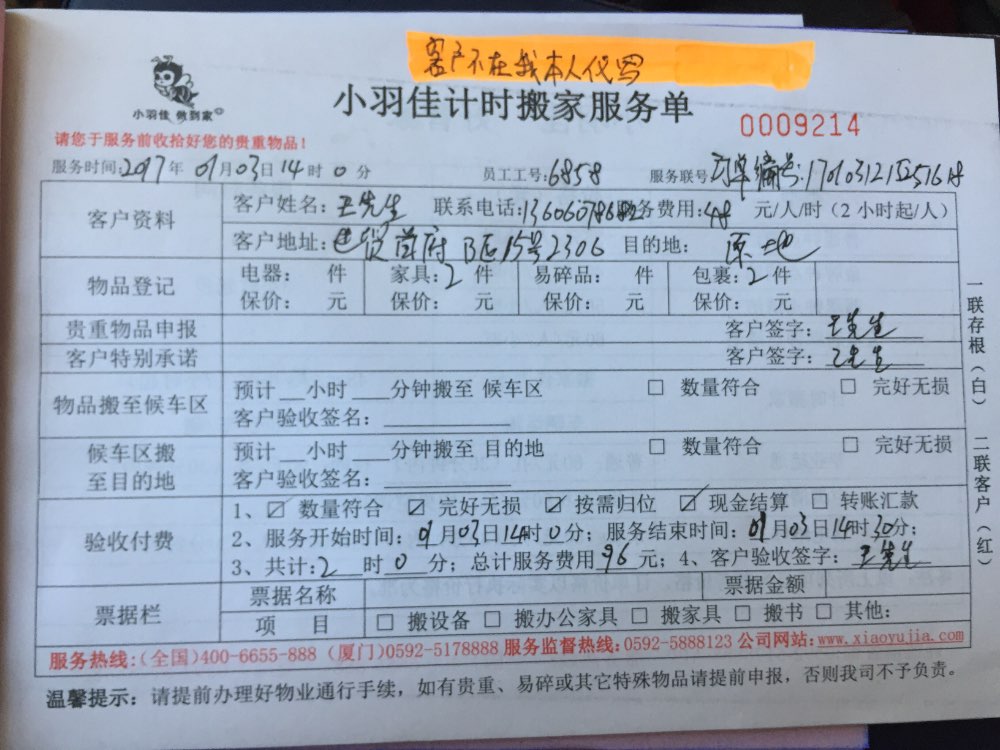 客户不在我本人代写
小羽佳 做到家
小羽佳计时搬家服务单
0009214
请您于服务前收拾好您的贵重物品!
服务时间:2017年01月03日14时0分 员工工号:6858 服务联号:订单编号:
客户资料 客户姓名:王先生 联系电话: 服务费用:48元/人/时(2小时起/人)
客户地址: B区15号2306 目的地:原地
物品登记 电器: 件 家具:2件 易碎品: 件 包裹:2件
保价: 元 保价: 元 保价: 元 保价: 元
贵重物品申报 客户签字:王先生
客户特别承诺 客户签字:王先生
物品搬至候车区 预计__小时___分钟搬至 候车区 □ 数量符合 □ 完好无损
客户验收签名:
候车区搬至目的地 预计__小时___分钟搬至 目的地 □ 数量符合 □ 完好无损
客户验收签名:
验收付费 1、☑ 数量符合 ☑ 完好无损 ☑ 按需归位 ☑ 现金结算 □ 转账汇款
2、服务开始时间:01月03日14时0分;服务结束时间:01月03日14时30分;
3、共计:2时0分;总计服务费用96元;4、客户验收签字:王先生
票据栏 票据名称 票据金额
项 目 □ 搬设备 □ 搬办公家具 □ 搬家具 □ 搬书 □ 其他:
服务热线:(全国)400-6655-888 (厦门)0592-5178888 服务监督热线:0592-5888123 公司网站:www.xiaoyujia.com
温馨提示:请提前办理好物业通行手续,如有贵重、易碎或其它特殊物品请提前申报,否则我司不予负责。
一联存根(白) 二联客户(红)